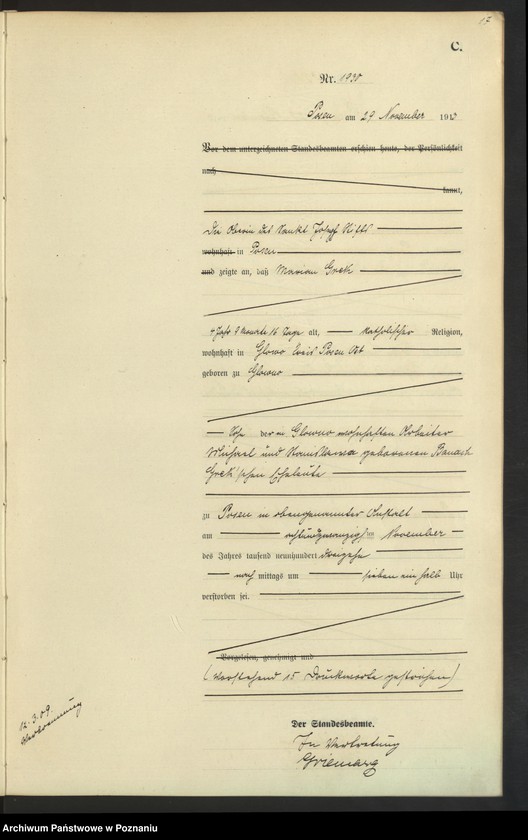 17
C.
Nr. 1930
Posen am 29 November 1913
Vor dem unterzeichneten Standesbeamten erschien heute, der Persönlichkeit
nach
kannt,
Die Oberin des Sankt Josef Stifts
wohnhaft in Posen
und zeigte an, daß Marian Grek
4 Jahr 8 Monate 16 Tage alt, katholischer Religion,
wohnhaft in Glowno Kreis Posen Ost
geboren zu Glowno
Sohn der in Glowno wohnhaften Arbeiter
Michael und Stanislawa geborenen Banach
Grek'schen Eheleute
zu Posen in obengenannter Anstalt
am achtundzwanzigsten November
des Jahres tausend neunhundert dreizehn
nach mittags um sieben ein halb Uhr
verstorben sei.
Vorgelesen, genehmigt und
(Vorstehend 15 Druckworte gestrichen)
Der Standesbeamte.
In Vertretung
12.3.09.
Archiwum Państwowe w Poznaniu